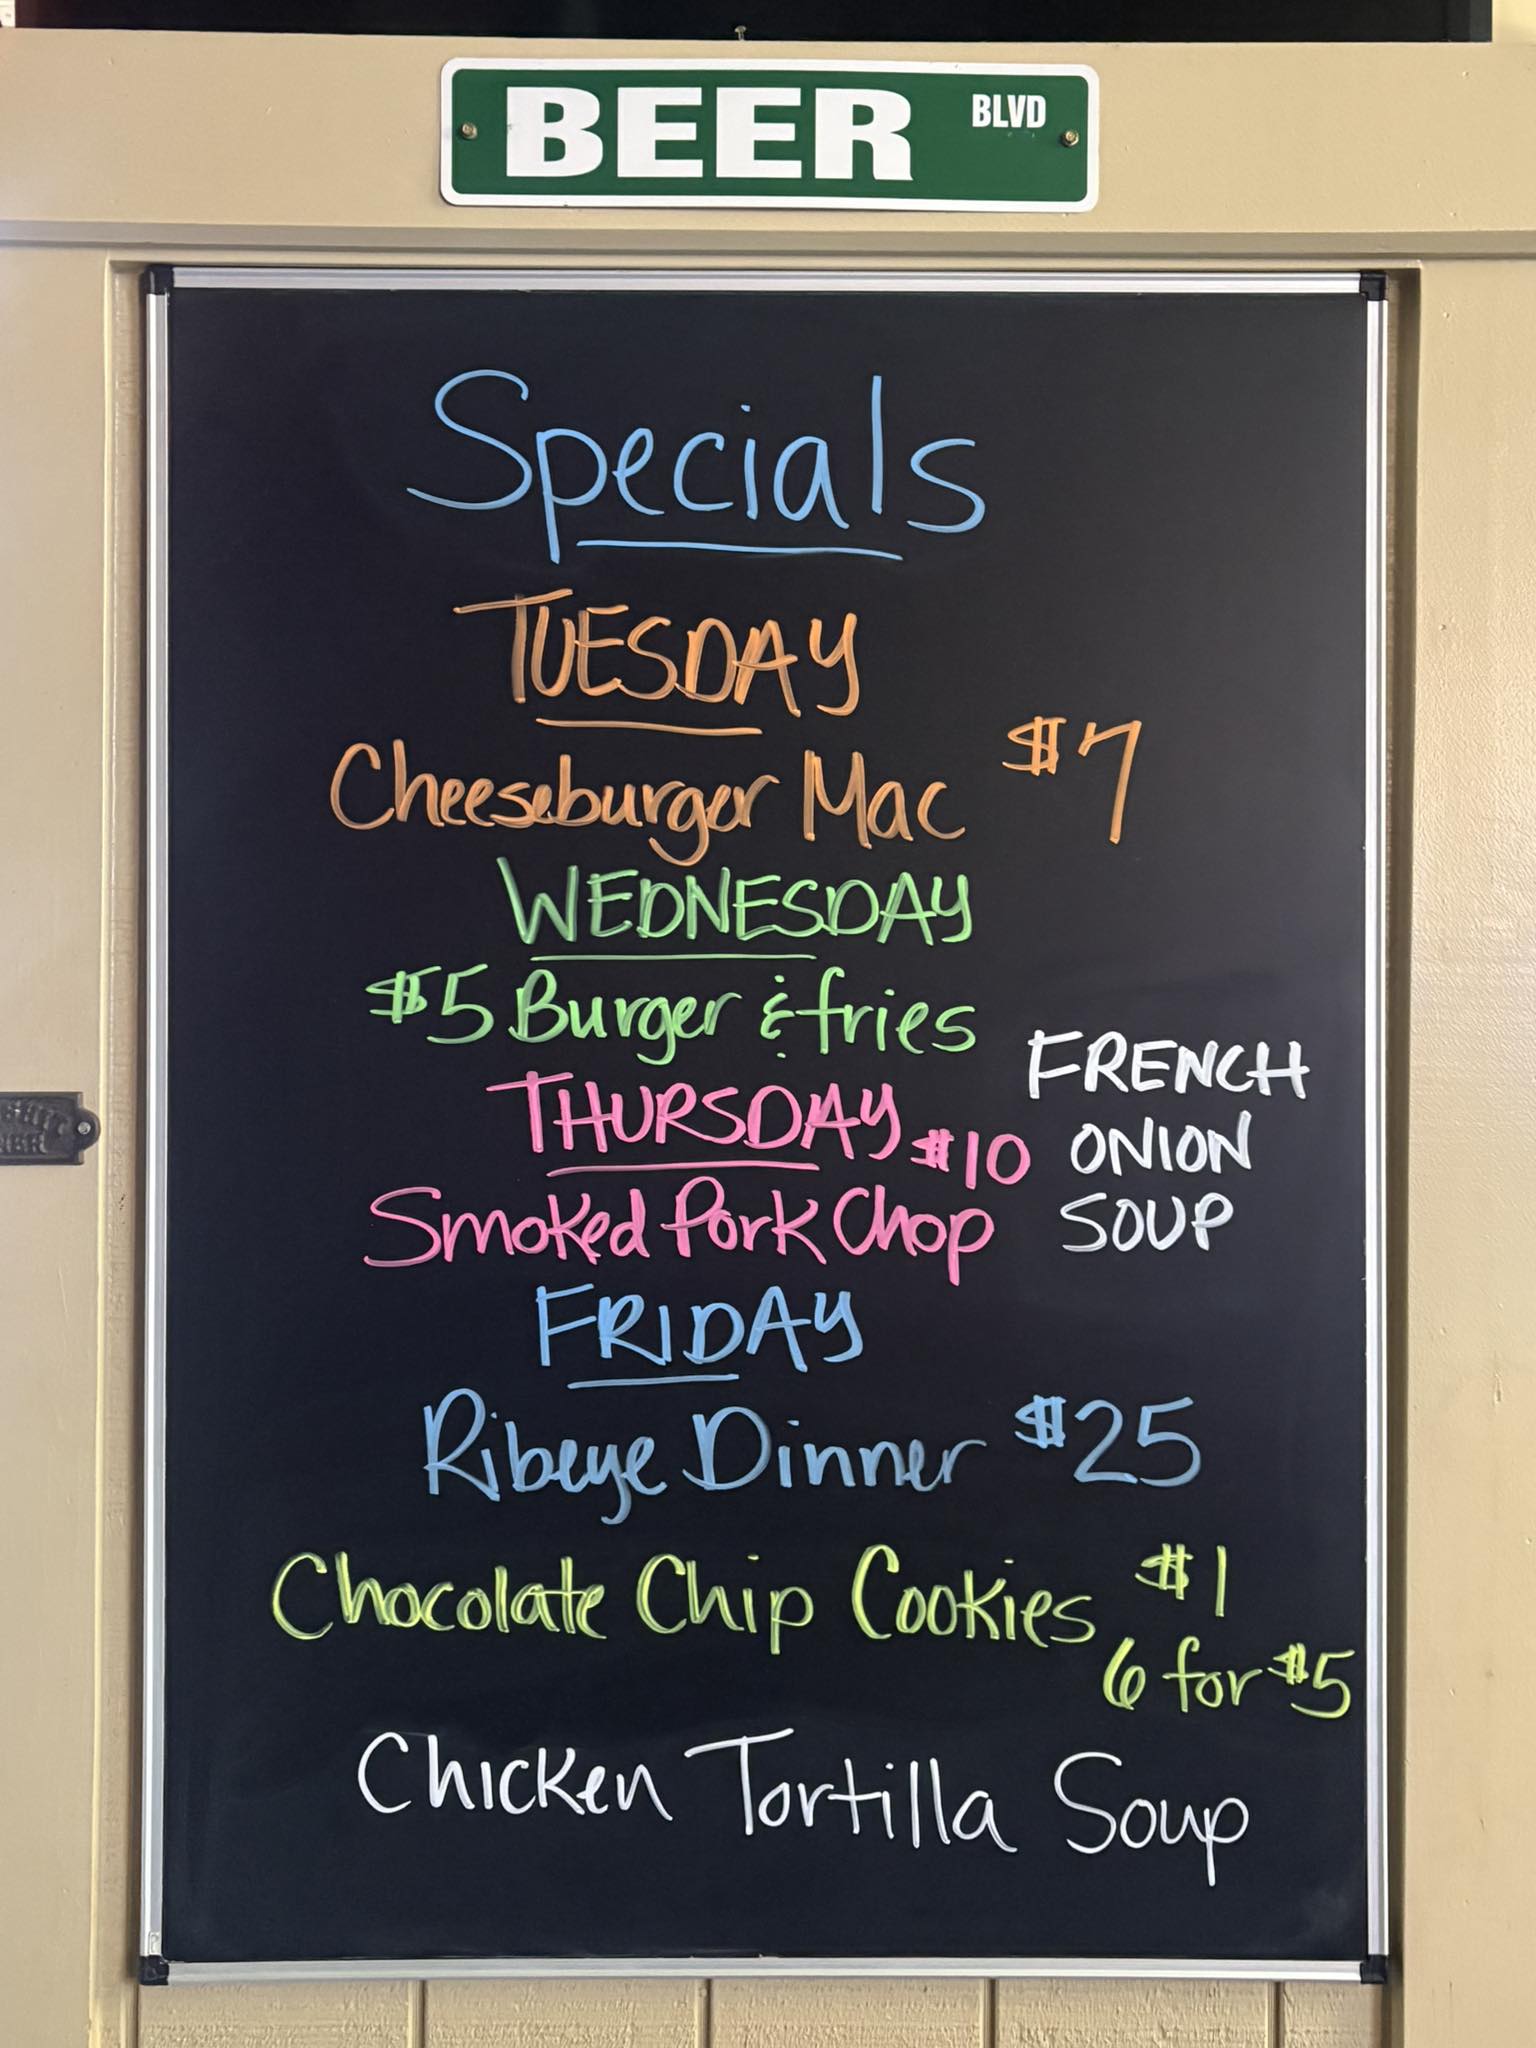 BEER BLVD
Specials
TUESDAY
Cheeseburger Mac $7
WEDNESDAY
$5 Burger & fries
THURSDAY $10
Smoked Pork Chop
FRENCH
ONION
SOUP
FRIDAY
Ribeye Dinner $25
Chocolate Chip Cookies $1
6 for $5
Chicken Tortilla Soup